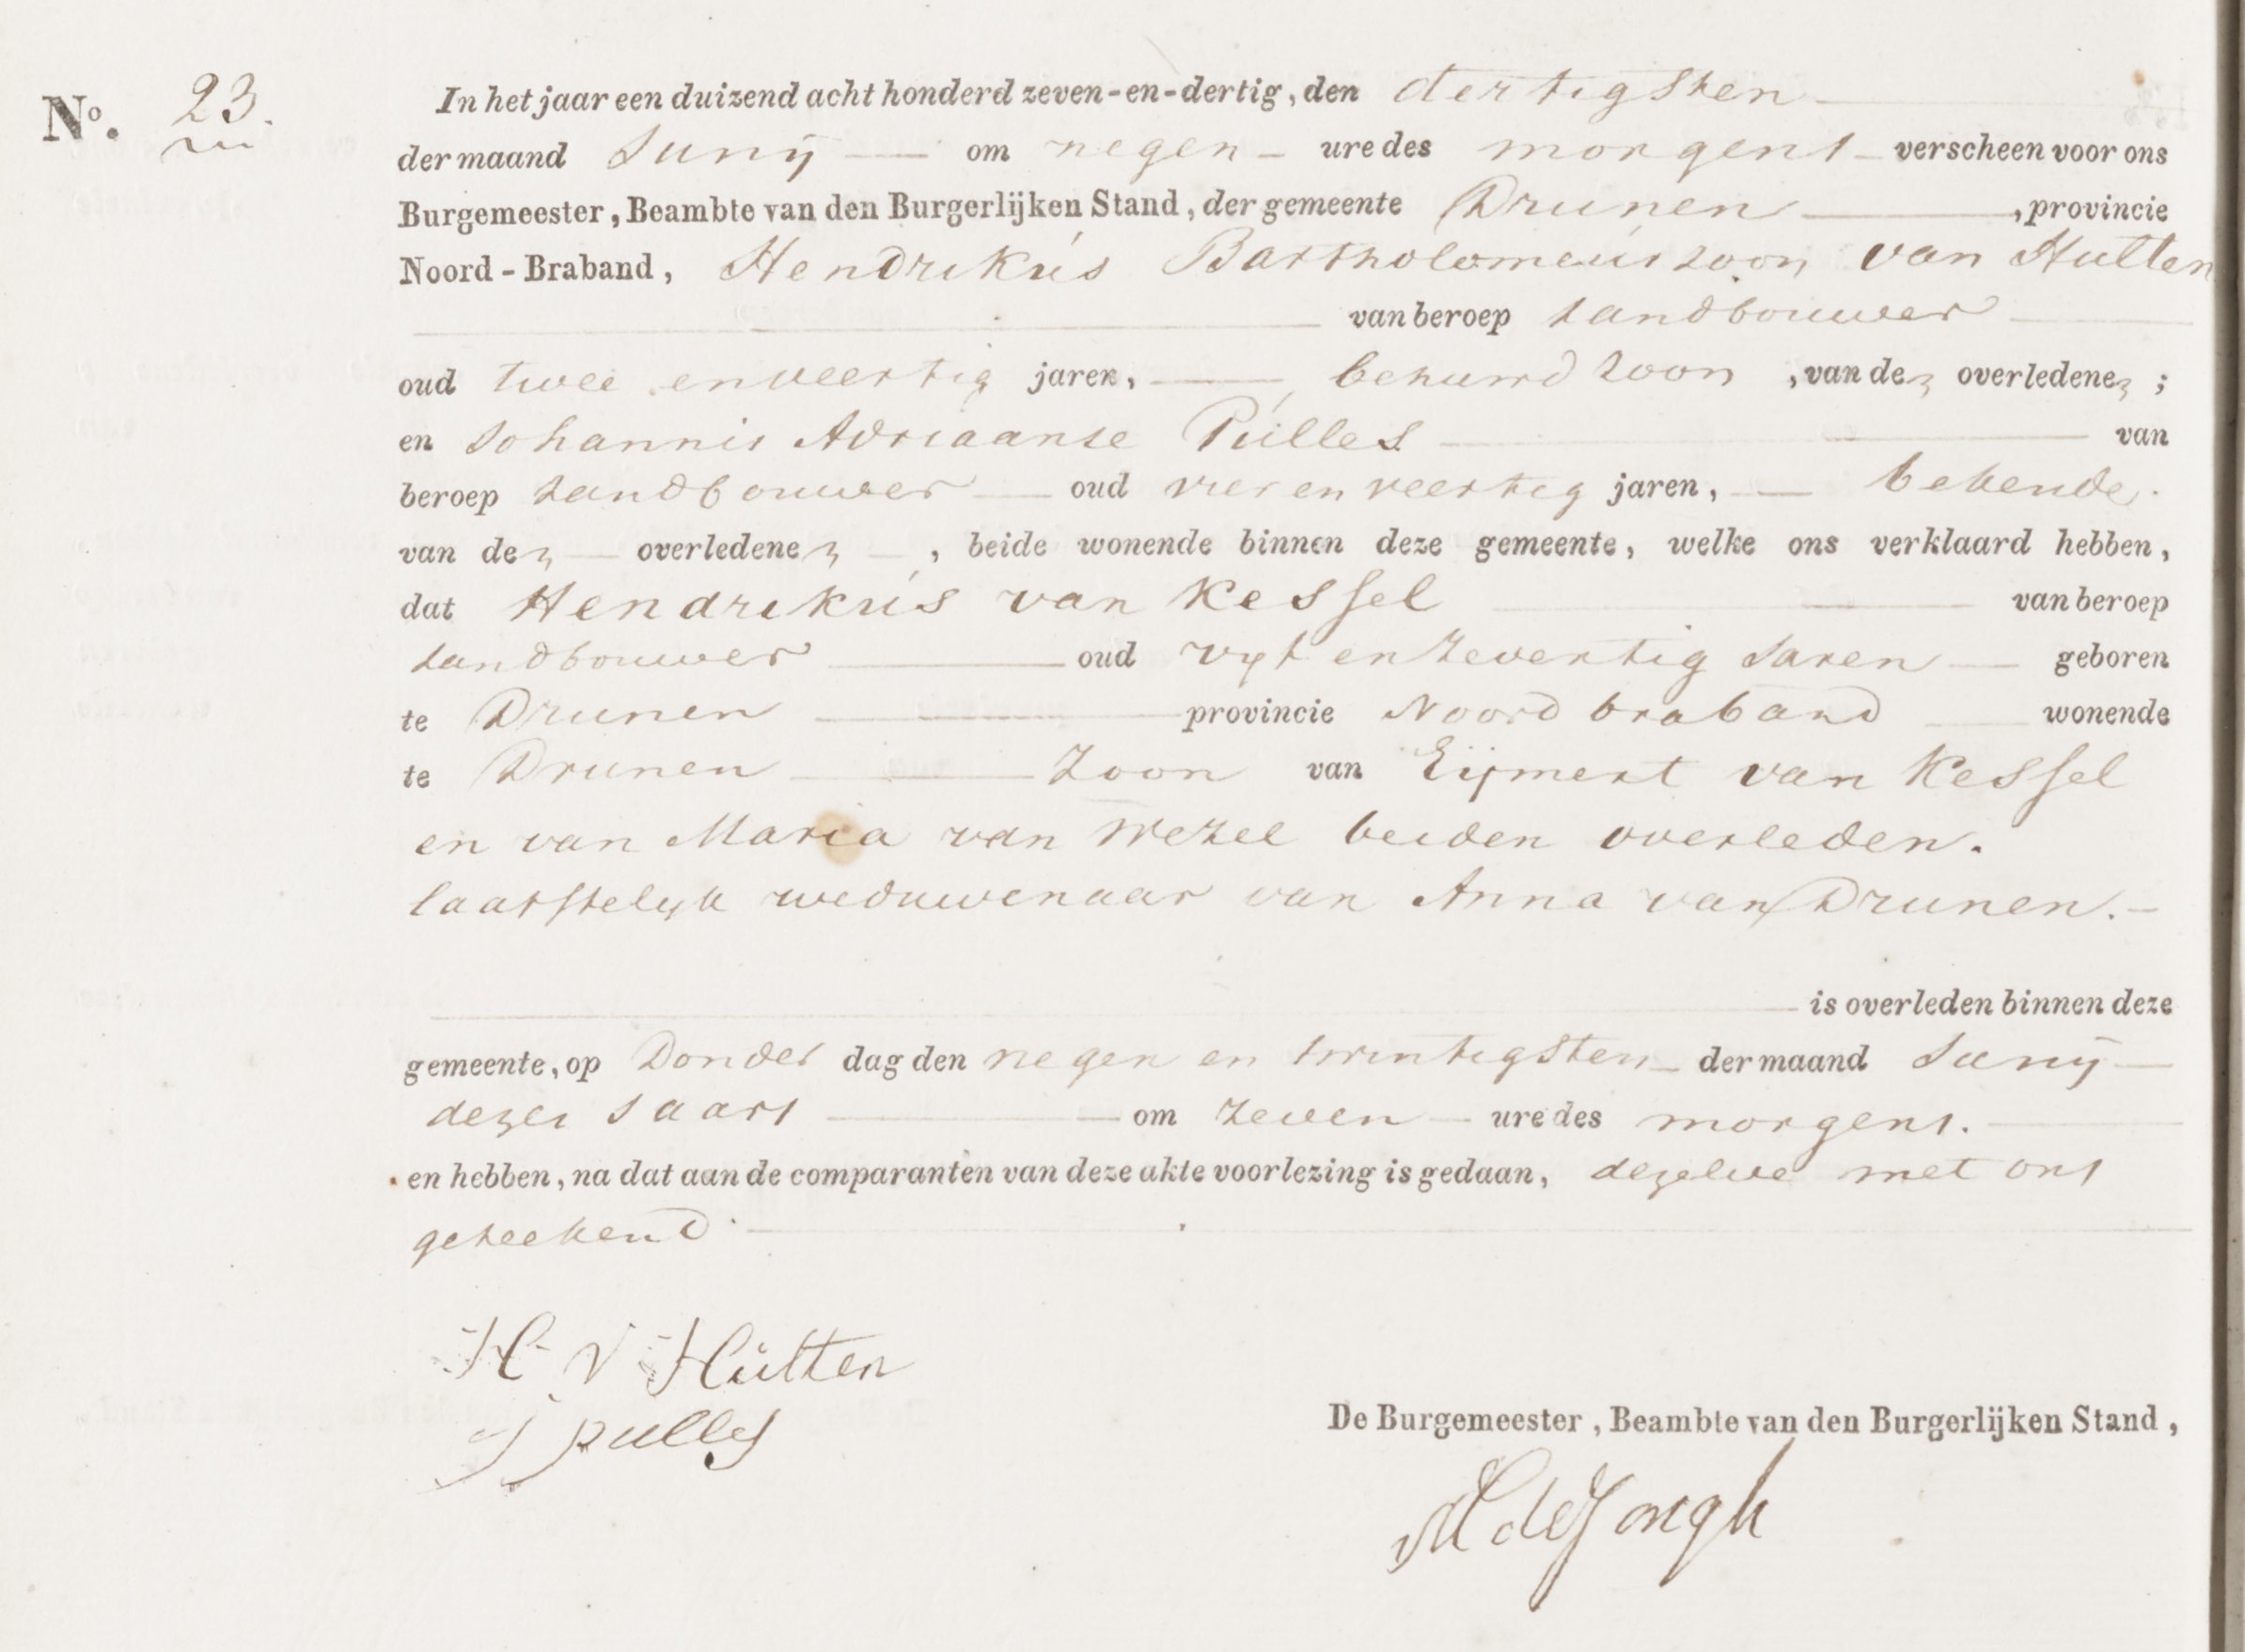 N°. 23.
In het jaar een duizend acht honderd zeven-en-dertig, den dertigsten
der maand Junij om negen ure des morgens verscheen voor ons
Burgemeester, Beambte van den Burgerlijken Stand, der gemeente Drunen, provincie
Noord-Braband, Hendrikus Bartholomeus zoon van Hulten
van beroep landbouwer
oud twee en veertig jaren, behuwd zoon, van den overledenen;
en Johannis Adriaanse Pulles van
beroep landbouwer oud vier en veertig jaren, bekende
van den overledenen, beide wonende binnen deze gemeente, welke ons verklaard hebben,
dat Hendrikus van Kessel van beroep
landbouwer oud vyf en zeventig Jaren geboren
te Drunen provincie Noord braband wonende
te Drunen Zoon van Eijmert van Kessel
en van Maria van Wezel beiden overleden.
laatstelyk weduwenaar van Anna van Drunen.
is overleden binnen deze
gemeente, op Donder dag den negen en twintigsten der maand Junij
dezes Jaars om zeven ure des morgens.
en hebben, na dat aan de comparanten van deze akte voorlezing is gedaan, dezelve met ons
geteekend
H V Hülten
J pulles
De Burgemeester, Beambte van den Burgerlijken Stand,
de Jongh